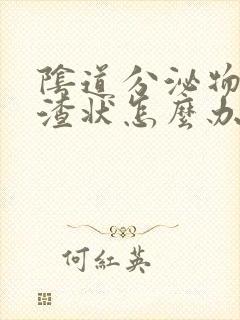 陰道分泌物
渣狀怎麼办
何紅英